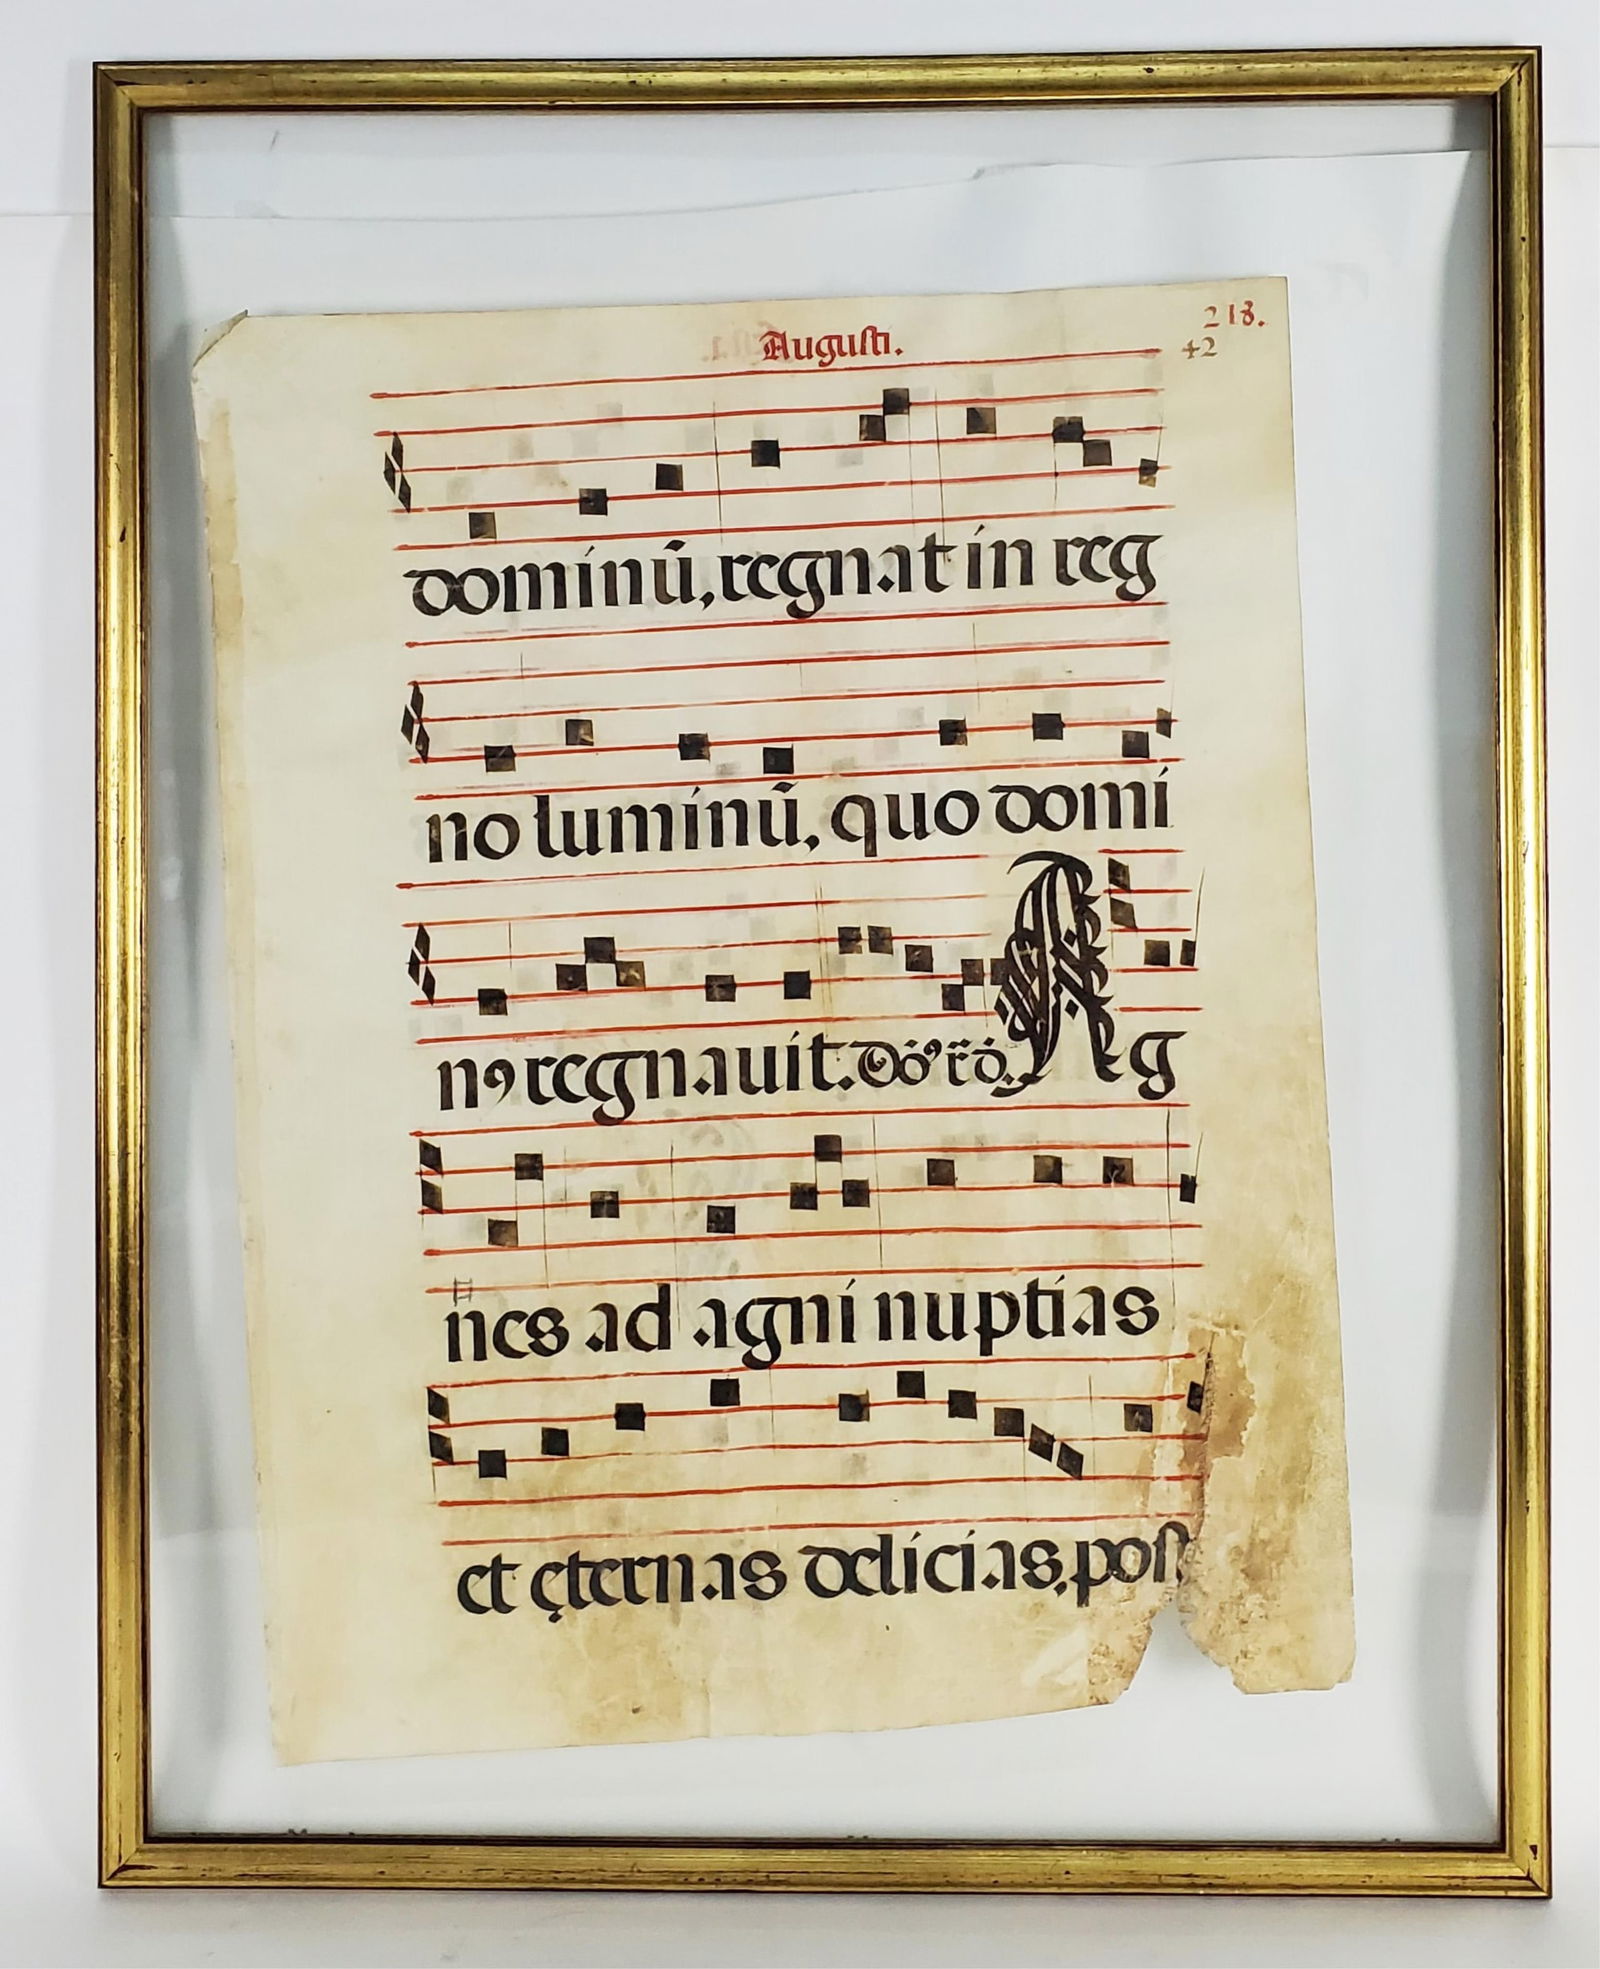 Augusti.
218.
42
dominū, regnat in reg
no luminū, quo domi
nꝯ regnauit. Ag
nes ad agni nuptias
et ęternas delicias, post